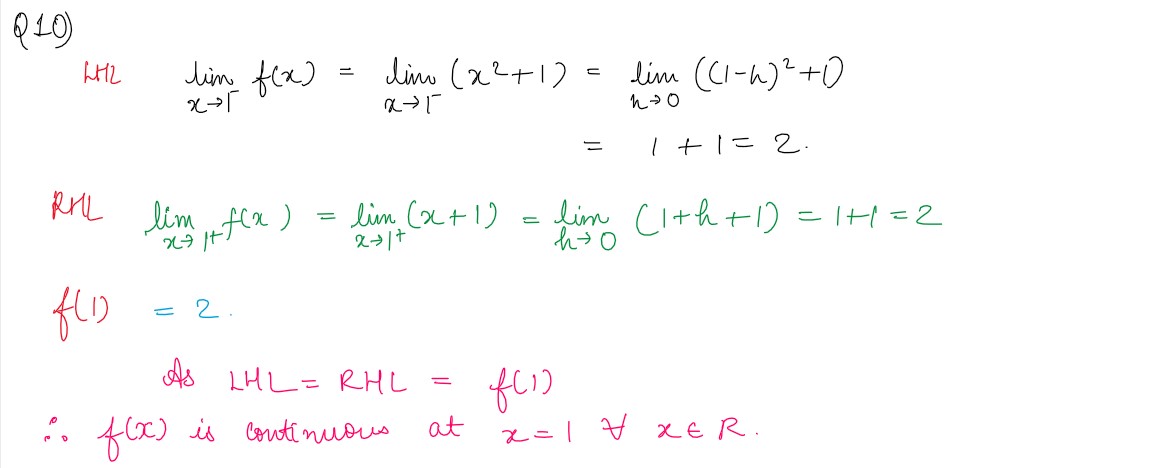 Q10)
LHL lim x→1⁻ f(x) = lim x→1⁻ (x²+1) = lim h→0 ((1-h)²+1)
= 1 + 1 = 2.
RHL lim x→1⁺ f(x) = lim x→1⁺ (x+1) = lim h→0 (1+h+1) = 1+1 = 2
f(1) = 2.
As LHL = RHL = f(1)
∴ f(x) is continuous at x=1 ∀ x∈R.